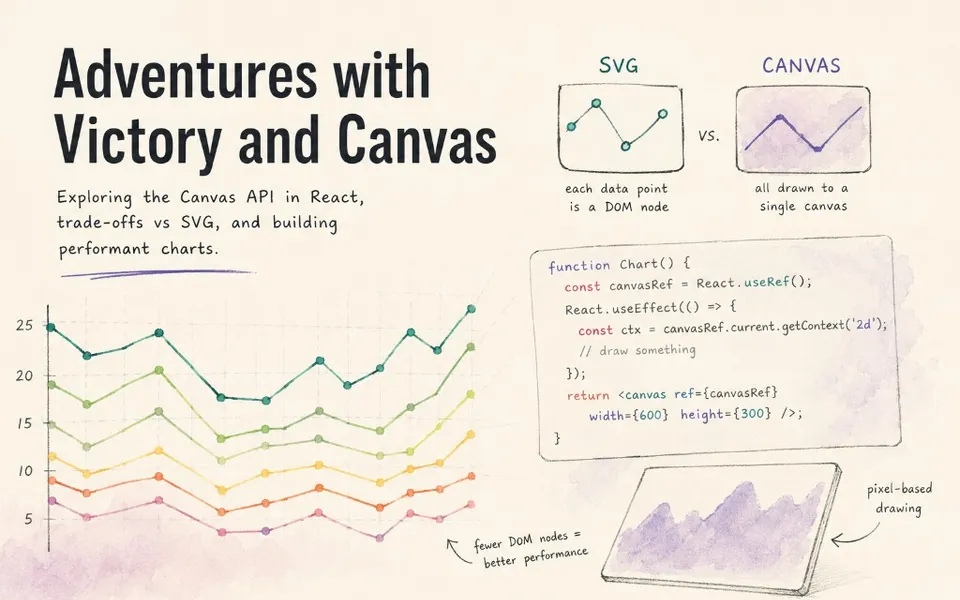 Adventures with
Victory and Canvas
Exploring the Canvas API in React,
trade-offs vs SVG, and building
performant charts.
SVG
CANVAS
vs.
each data point
is a DOM node
all drawn to a
single canvas
function Chart() {
const canvasRef = React.useRef();
React.useEffect(() => {
const ctx = canvasRef.current.getContext('2d');
// draw something
});
return <canvas ref={canvasRef}
width={600} height={300} />;
}
25
20
15
10
5
fewer DOM nodes =
better performance
pixel-based
drawing